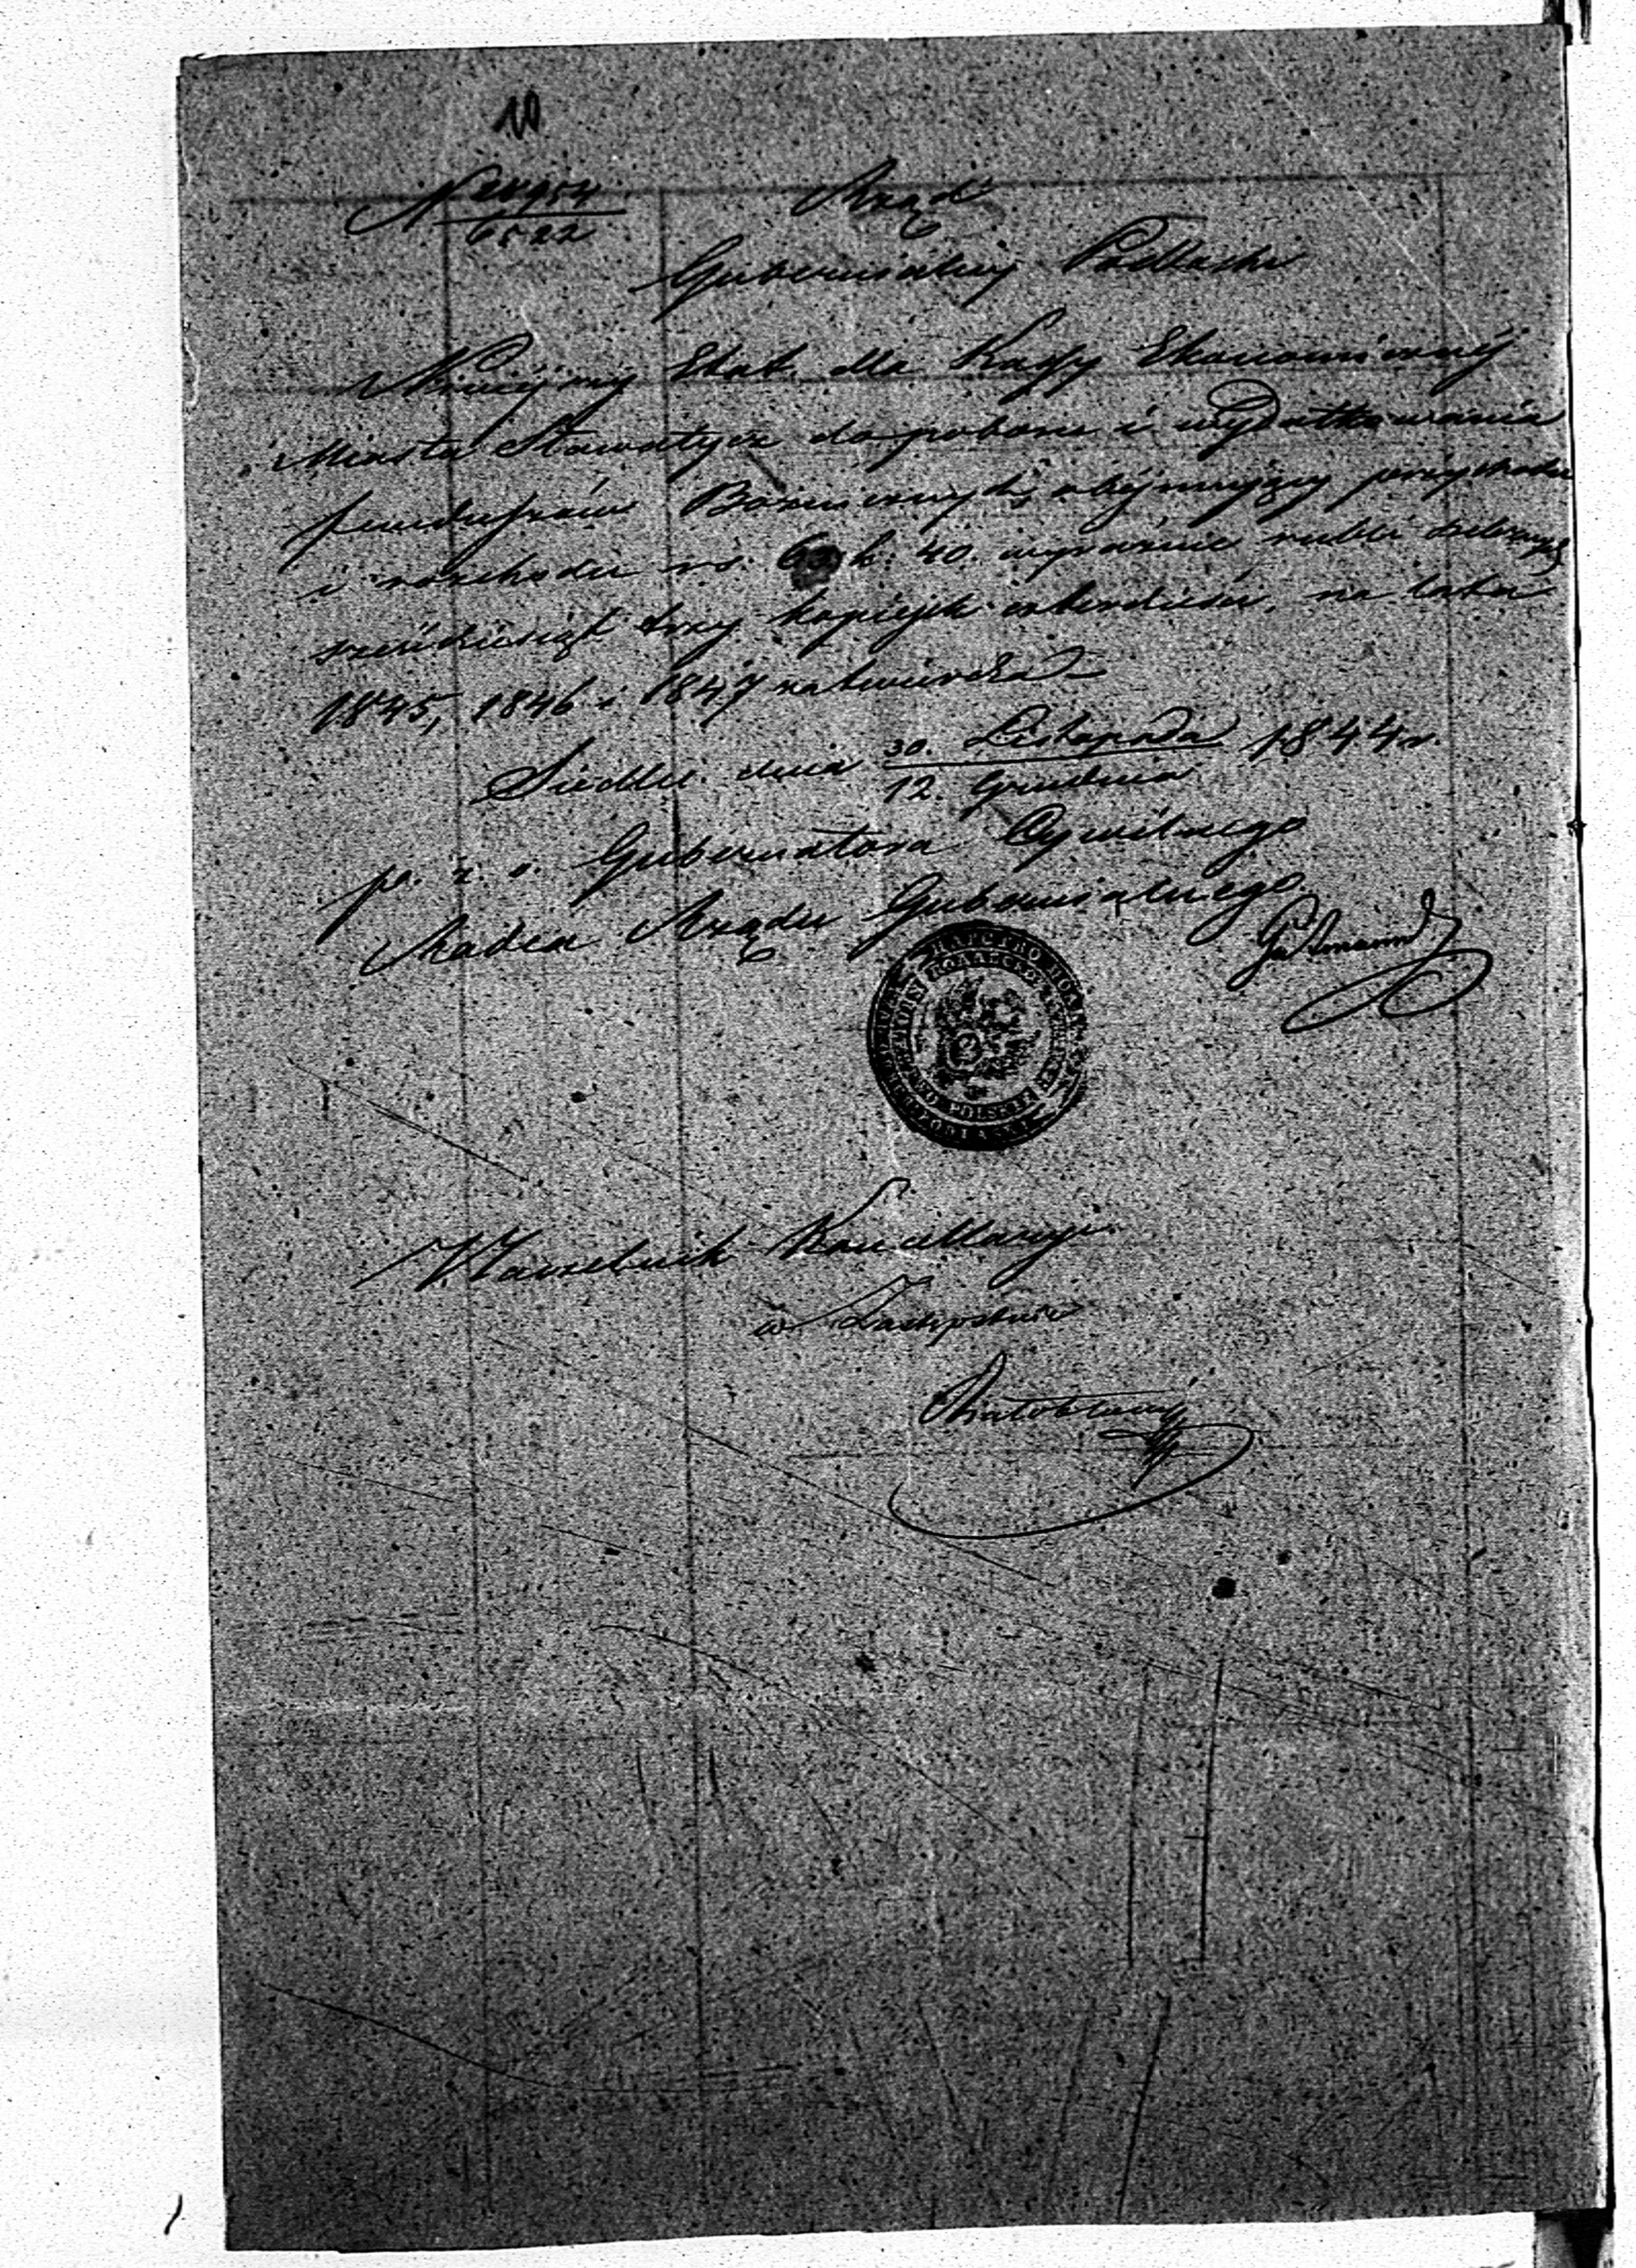 10
N 28954
6522
Rząd
Gubernialny Podlaski
Ninieyszy Etat dla Kassy Ekonomiczney
Miasta Sławatycz do poboru i wydatkowania
funduszów Bożniczych, obeymuiący przychodu
i rozchodu rs. 63 k. 40. wyraźnie rubli srebrnych
sześćdziesiąt trzy kopiejek czterdzieści, na lata
1845, 1846 i 1847 zatwierdza
Siedlce dnia 30. Listopada 1844 r.
12. Grudnia
p. z. o. Gubernatora Cywilnego
Radca Rządu Gubernialnego
POLSKIE
Naczelnik Kancellaryi
w Zastępstwie